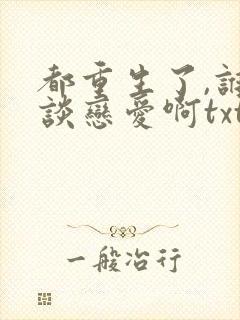 都重生了,誰
談戀愛啊txt
一般冶行